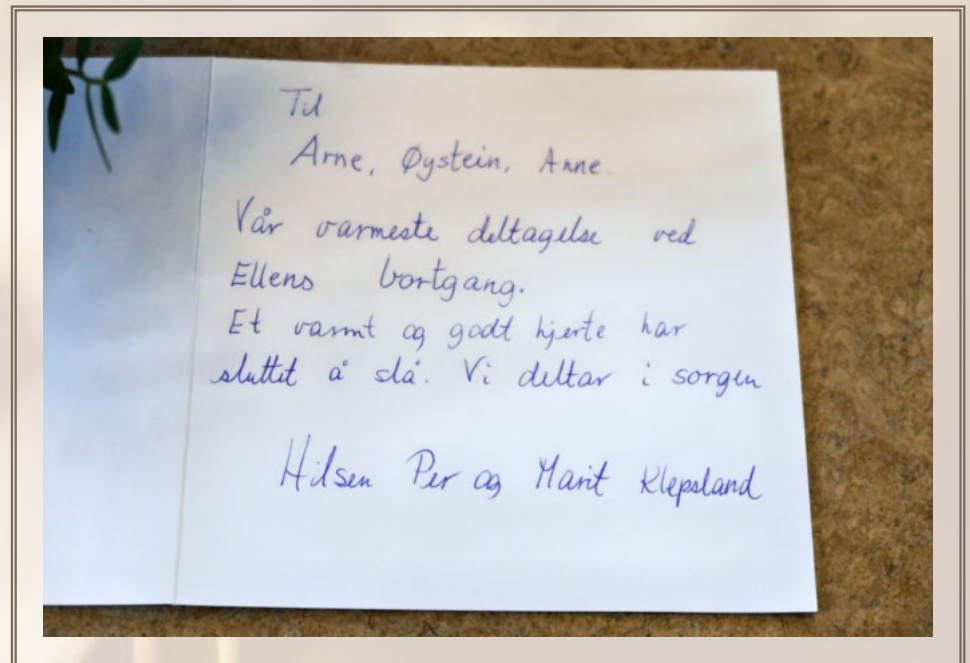 Til
Arne, Øystein, Anne
Vår varmeste deltagelse ved
Ellens bortgang.
Et varmt og godt hjerte har
sluttet å slå. Vi deltar i sorgen
Hilsen Per og Marit Klepsland